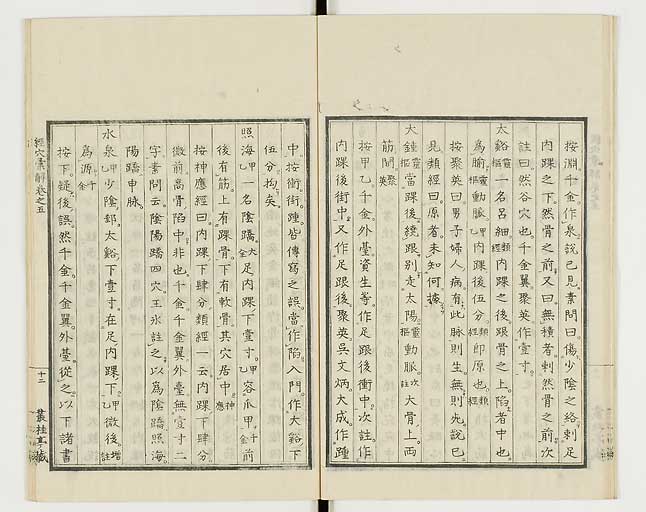 按淵千金作泉說已見素問曰傷少陰之絡刺足
內踝之下然骨之前又曰無積者刺然骨之前次
註曰然谷穴也千金翼聚英作壹寸
太谿靈樞一名呂細類經內踝之後跟骨之上陷者中也
為腧靈樞動脈甲乙內踝後伍分類經即原也類經
按聚英曰男子婦人病有此脈則生無則死說已
見類經曰原者未知何據
大鍾靈樞當踝後繞跟別走太陽靈樞動脈次註大骨上兩
筋間聚英
按甲乙千金外臺資生等作足跟後衝中次註作
內踝後街中又作足跟後聚英吳文炳大成作踵
中按衝街踵皆傳寫之誤當作陷入門作大谿下
伍分均矣
照海甲乙一名陰蹻大全足內踝下壹寸甲乙容爪甲千金前
後有筋上有踝骨下有軟骨其穴居中神應
按神應經曰內踝下肆分類經一云內踝下肆分
微前高骨陷中非也千金千金翼外臺無壹寸二
字素問云陰陽蹻四穴王冰註之以為陰蹻照海
陽蹻申脈
水泉甲乙少陰郄太谿下壹寸在足內踝下甲乙微後增註
為源千金
按下鍉後誤然千金千金翼外臺從之以下諸書
經穴彙解卷之五
十三
叢桂亭藏